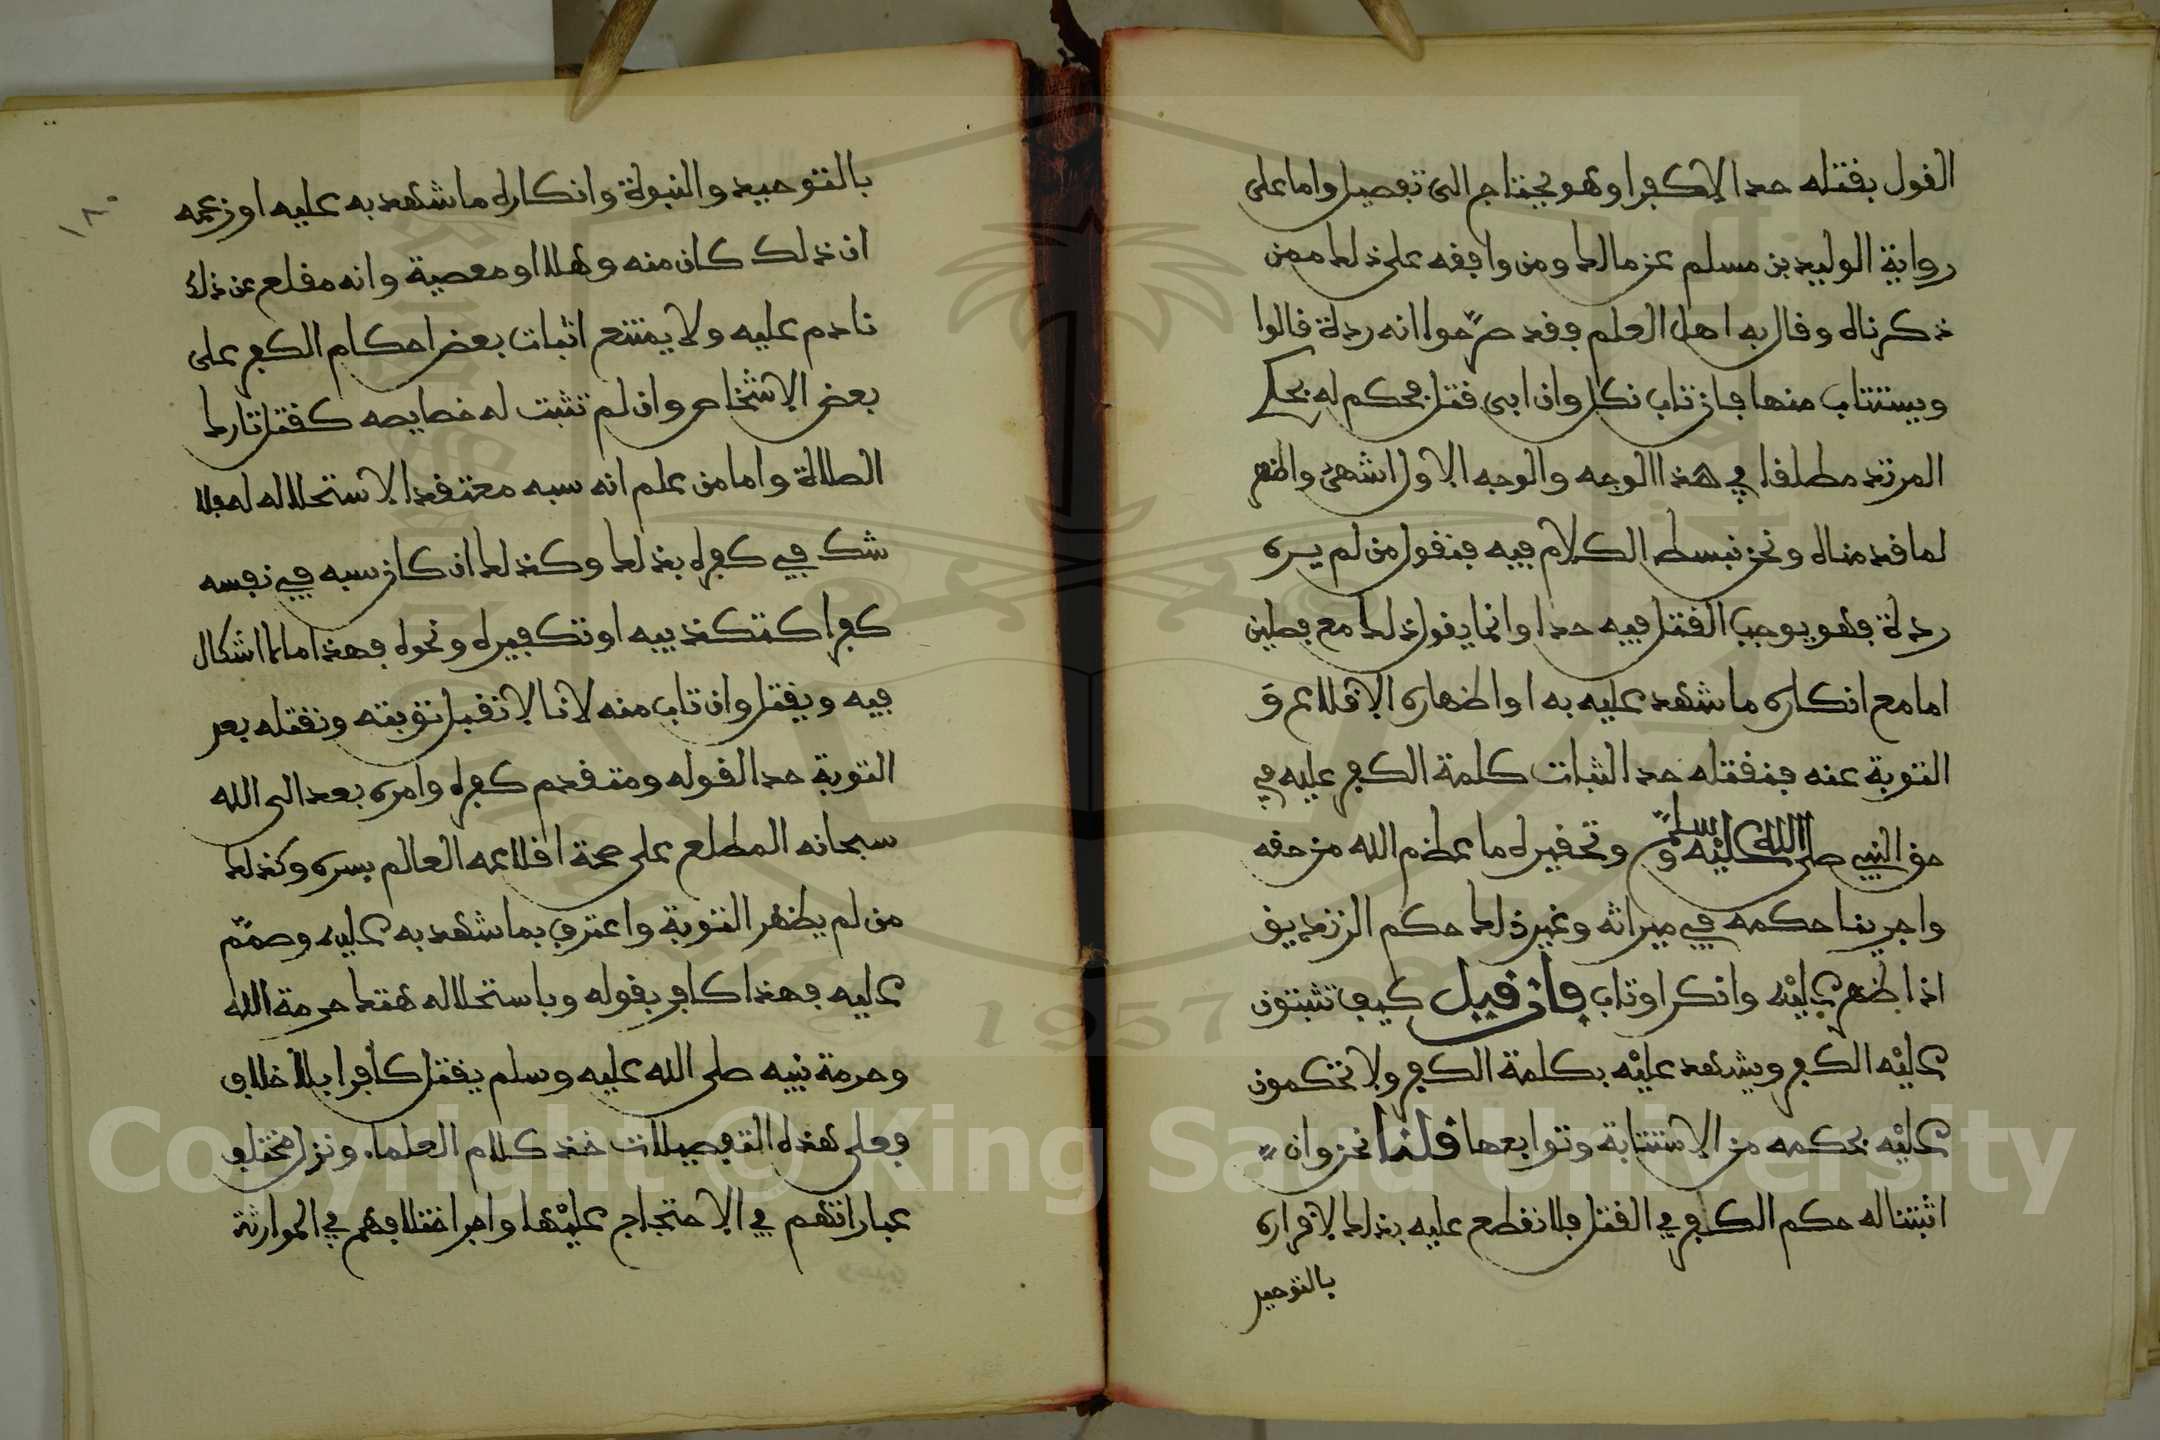 القول بقتله حدا لا كفرا وهو يحتاج الى تفصيل واما على
رواية الوليد بن مسلم عن مالك ومن وافقه على ذلك ممن
ذكرناه وقال به اهل العلم فقد صرّحوا انه ردة قالوا
ويستتاب منها فان تاب نكل وان ابى قتل فحكم له بحكم
المرتد مطلقا في هذا الوجه والوجه الاول اشهر واظهر
لما قدمناه ونحن نبسط الكلام فيه فنقول من لم يره
ردة فهو يوجب القتل فيه حدا وانما يقول ذلك مع فصلين
اما مع انكاره ما شهد عليه به او اظهاره الاقلاع وَ
التوبة عنه فنقتله حدا لثبات كلمة الكفر عليه في
حق النبي صلى الله عليْه وسلمّ وتحقيره ما عظم الله من حقه
واجرينا حكمه في ميراثه وغير ذلك حكم الزنديق
اذا ظهر عليْه وانكر او تاب فان قيل كيف تثبتون
عليْه الكفر ويشهد عليْه بكلمة الكفر ولا تحكمون
عليْه بحكمه من الاستتابة وتوابعها قلنا نحن وان
اثبتنا له حكم الكفر في القتل فلا نقطع عليه بذلك لاقراره
بالتوحيد
١٨٠
بالتوحيد والنبوة وانكاره ما شهد به عليه او زعمه
ان ذلك كان منه وهلا او معصية وانه مقلع عن ذلك
نادم عليه ولا يمتنع اثبات بعض احكام الكفر على
بعض الاشخاص وان لم تثبت له خصايصه كقتل تارك
الصلاة واما من علم انه سبه معتقدا لاستحلاله له فلا
شك في كفره بذلك وكذلك ان كان سبه في نفسه
كفرا كتكذيبه او تكفيره ونحوه فهذا ما لا اشكال
فيه ويقتل وان تاب منه لانا لا نقبل توبته ونقتله بعد
التوبة حدا لقوله ومتقدم كفره وامره بعد الى الله
سبحانه المطلع على صحة اقلاعه العالم بسره وكذلك
من لم يظهر التوبة واعترف بما شهد به عليه وصممّ
عليه فهذا كافر بقوله وباستحلاله هتك حرمة الله
وحرمة نبيه صلى الله عليه وسلم يقتل كافرا بلا خلاف
فعلى هذه التفصيلات خذ كلام العلماء ونزل مختلف
عباراتهم في الاحتجاج عليْها واجر اختلافهم في الموارثة
Copyright © King Saud University
1957